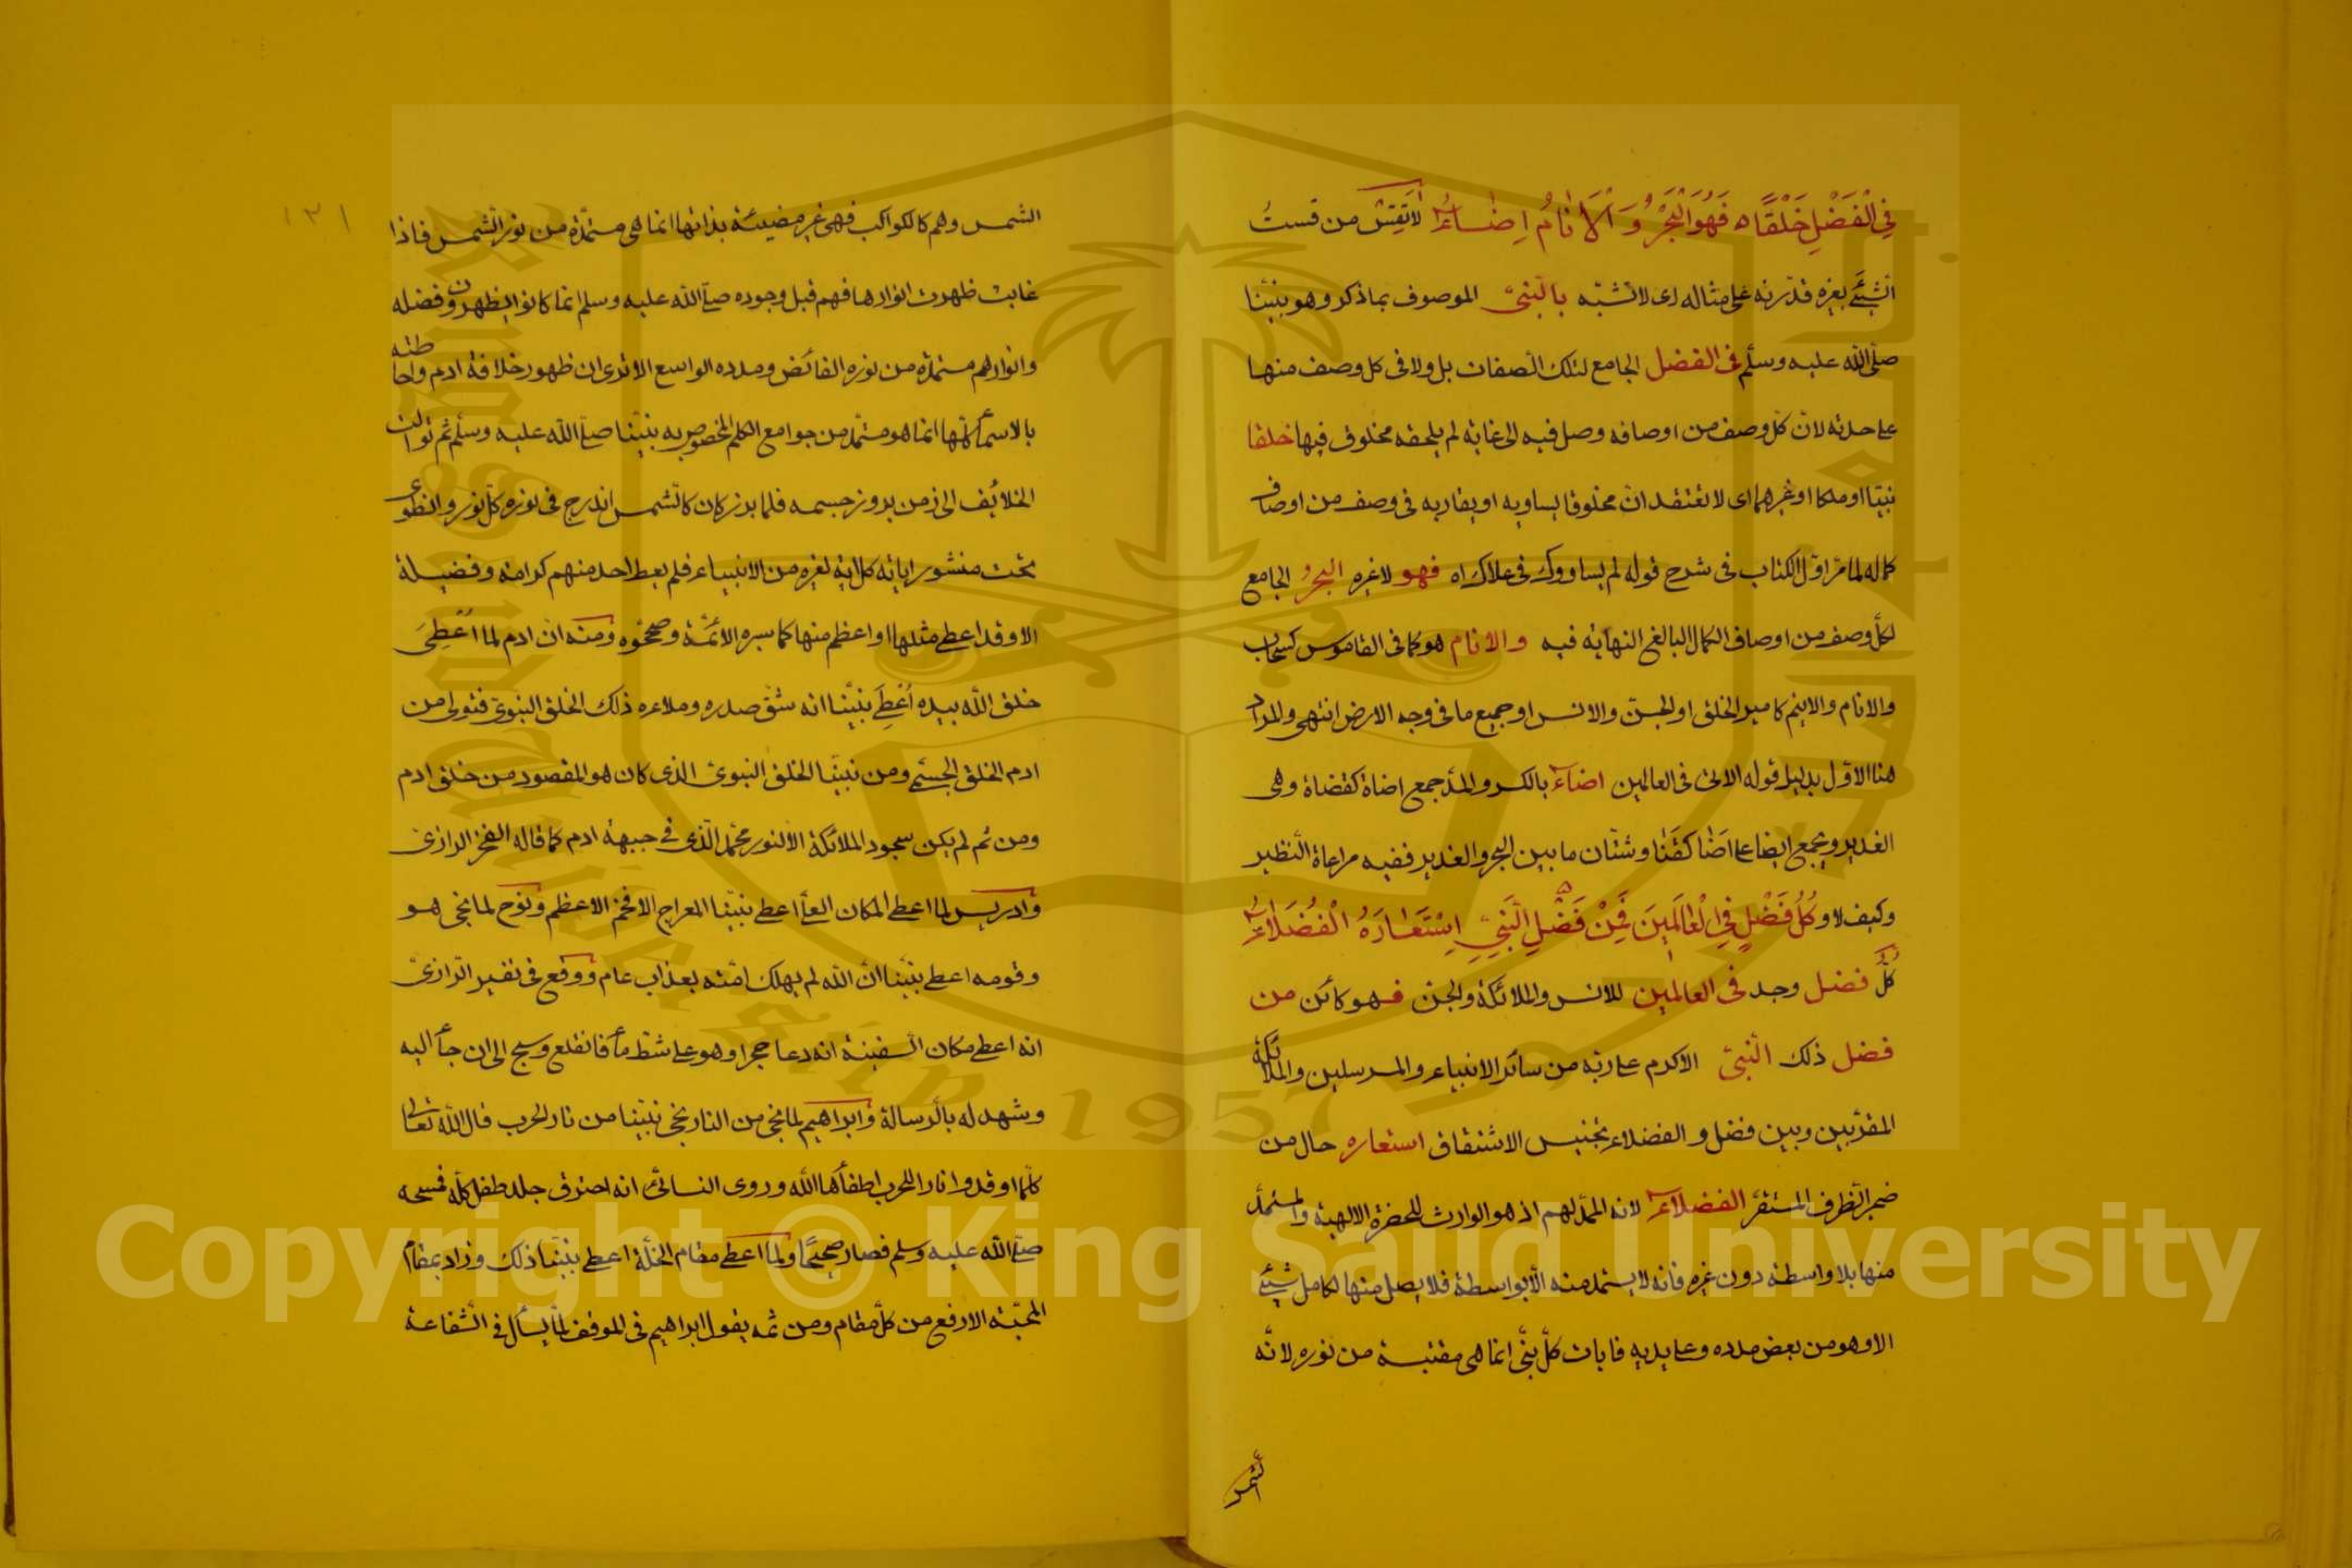 في الْفَضْلِ خَلْقًا ه فَهُوَ الْبَحْرُ وَ الْاَنَامُ اِضَاءُ لا تَقِسْ من قستُ
الشيئَ بغيره قدّرته على مثاله اى لا تشبّه بالنبىّ الموصوف بما ذكر وهو نبيّنا
صلّى الله عليه وسلّم فى الفضل الجامع لتلك الصفات بل ولا فى كل وصف منها
على حدته لانّ كلّ وصف من اوصافه وصل فيه الى غاية لم يلحقه مخلوق فيها خلقا
نبيّا او ملكا او غيرهما اى لا تعتقد انّ مخلوقا يساويه او يقاربه فى وصف من اوصاف
كماله لما مرّ اوّل الكتاب فى شرح قوله لم يساووك فى علاك اه فهو لا غيره البحرُ الجامع
لكلّ وصف من اوصاف الكمال البالغ النهاية فيه والانام هو كما فى القاموس كسحاب
والانام والانيم كامير الخلق او الجنّ والانس او جميع ما فى وجه الارض انتهى والمراد
هنا الاوّل بدليل قوله الاتى فى العالمين اضاءٌ بالكسر والمدّ جمع اضاة كقضاة وهى
الغدير ويجمع ايضا على اَضًا كقَنًا وشتّان ما بين البحر والغدير ففيه مراعاة النّظير
وكيف لا و كُلُّ فَضْلٍ فِى الْعَالَمِينَ فَمِنْ فَضْلِ النَّبِىِّ اِسْتَعَارَهُ الْفُضَلَاءُ
كلّ فضل وجد فى العالمين للانس والملائكة والجنّ فهو كائن من
فضل ذلك النّبىّ الاكرم على ربّه من سائر الانبياء والمرسلين والملائكة
المقرّبين وبين فضل و الفضلاء تجنيس الاشتقاق استعاره حال من
ضمير الظرف المستقرّ الفضلاءُ لانه الممدّ لهم اذ هو الوارث للحضرة الالهية والمستمدّ
منها بلا واسطة دون غيره فانه لا يستمد منه الّا بواسطة فلا يصل منها لكامل شيئ
الا وهو من بعض مدده وعلى يديه فايات كلّ نبّى انما هى مقتبسة من نوره لانّه
الشمس
١٢١
الشمس وهم كالكواكب فهى غير مضيئة بذاتها انما هى مستمدّة من نور الشّمس فاذا
غابت ظهرت انوارها فهم قبل وجوده صلّى الله عليه وسلم انما كانوا يظهرون فضله
وانوارهم مستمدّة من نوره الفائض ومدده الواسع الا ترى ان ظهور خلافة ادم واحاطته
بالاسمآء كلّها انما هو مستمدّ من جوامع الكلم المخصوص به نبيّنا صلّى الله عليه وسلّم ثم توالت
الخلائف الى زمن بروز جسمه فلما برز كان كالشّمس اندرج فى نوره كلّ نور وانطوى
تحت منشور اياته كل اية لغيره من الانبياء فلم يعط احد منهم كرامة وفضيلة
الا وقد اعطى مثلها او اعظم منها كما سبره الائمّة وصحّحوه ومنه ان ادم لما اُعْطِىَ
خلق الله بيده اُعْطِىَ نبيّنا انه شقّ صدره وملاءه ذلك الخلق النبوىّ فتولى من
ادم الخلق الجسمّى ومن نبيّنا الخلق النبوىّ الذى كان هو المقصود من خلق ادم
ومن ثم لم يكن سجود الملائكة الّا لنور محمّد الّذى فى جبهة ادم كما قاله الفخر الرازىّ
وادريس لما اعطى المكان العلىّ اعطى نبيّنا المعراج الافخم الاعظم ونوح لما نجّى هو
وقومه اعطى نبيّنا انّ الله لم يهلك امّته بعذاب عام ووقع فى تفسير الرّازىّ
انه اعطى مكان السّفينة انه دعا حجرا وهو على شطّ مآء فانقلع وسبح الى ان جآء اليه
وشهد له بالرّسالة وابراهيم لما نجّى من النار نجّى نبيّنا من نار الحرب قال الله تعالى
كلّما اوقدوا نارا للحرب اطفأها الله وروى النسائىّ انه احترق جلد طفل كلّه فمسحه
صلّى الله عليه وسلم فصار صحيحًا ولما اعطى مقام الخلّة اعطى نبيّنا ذلك وزاد بمقام
المحبّة الارفع من كلّ مقام ومن ثمه يقول ابراهيم فى الموقف لمّا يسأل فى الشّفاعة
Copyright © King Saud University
1957